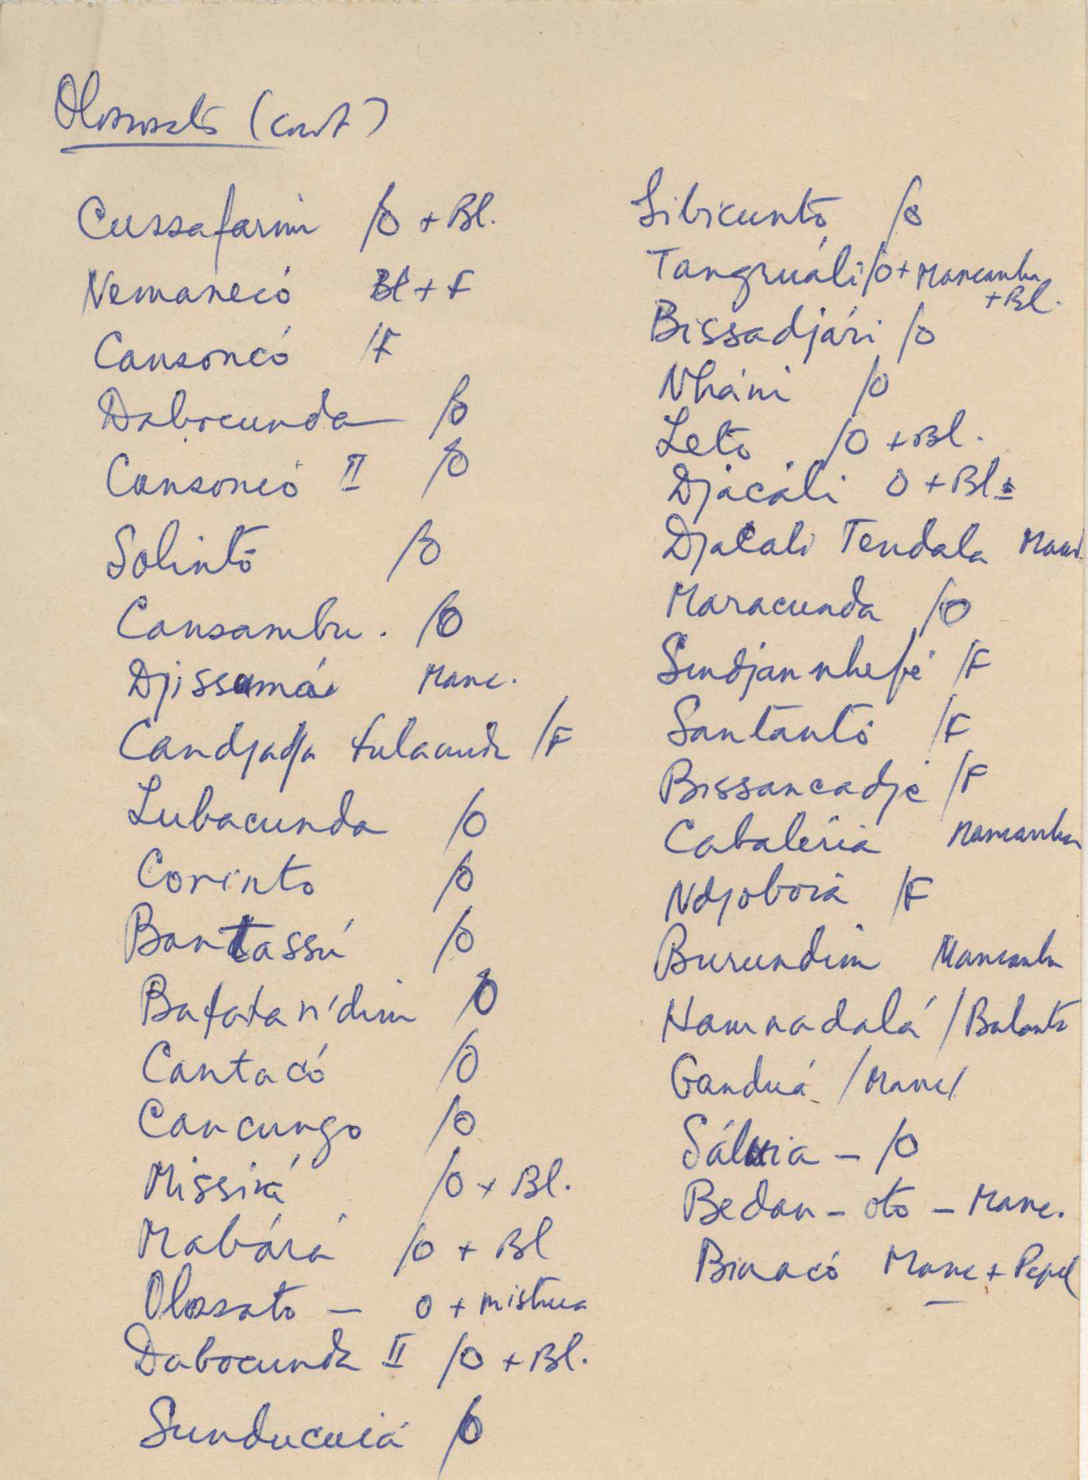 Olossato (cont)
Cussafarim /O + Bl.
Nemanecó Bl + F
Cansoncó /F
Dabocunda /O
Cansoncó II /O
Solintó /O
Cansambu. /O
Djissumái Manc.
Candjadja fulacunda /F
Lubacunda /O
Corinto /O
Bantassú /O
Bafata n'dim /O
Cantacó /O
Cancungo /O
Missirá /O + Bl.
Mabárá /O + Bl
Olossato – O + mistura
Dabocunda II /O + Bl.
Sunducuiá /O
Sibicunto /O
Tangruáli /O + Mancanha
+ Bl.
Bissadjári /O
Nháni /O
Leto /O + Bl.
Djacáli O + Bl.
Djacali Tendala Mand.
Maracunda /O
Sindjan nhefé /F
Santantó /F
Bissancadjé /F
Cabaleria Mancanha
Ndjoboiá /F
Burundim Mancanha
Namnadalá / Balanta
Ganduá / Manc/
– /O
Bedan – oto – Manc.
Binacó Manc + Pepel